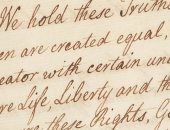 We hold these Truths
en are created equal,
eator with certain una
re Life, Liberty and th
re these Rights, Go